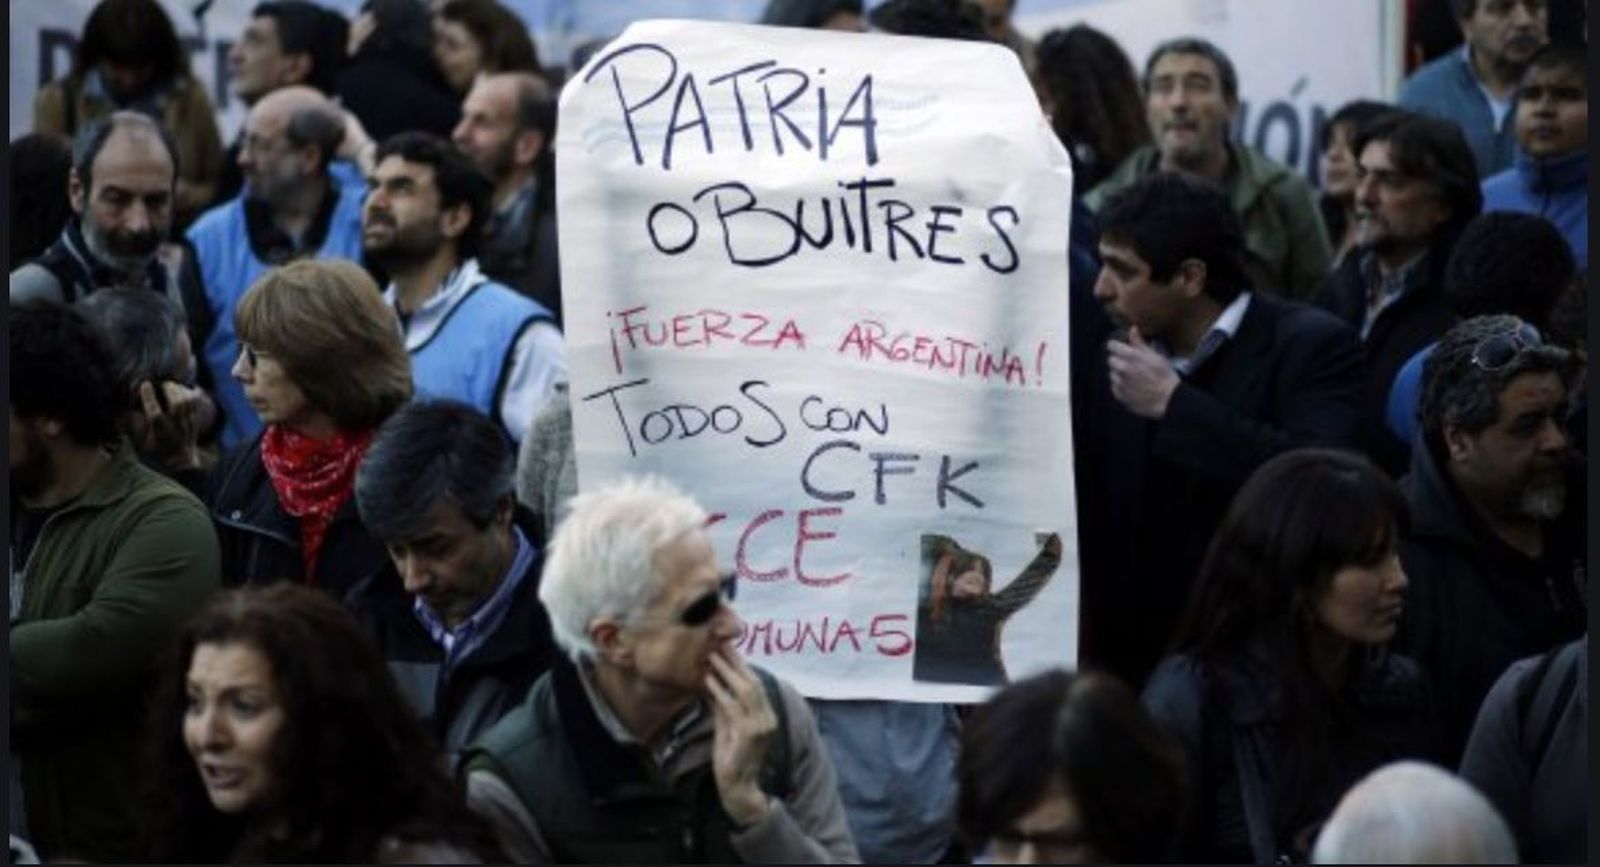 PATRiA
O BUITRES
¡FUERZA ARGENTINA!
TODOS CON
CFK
CCE
5